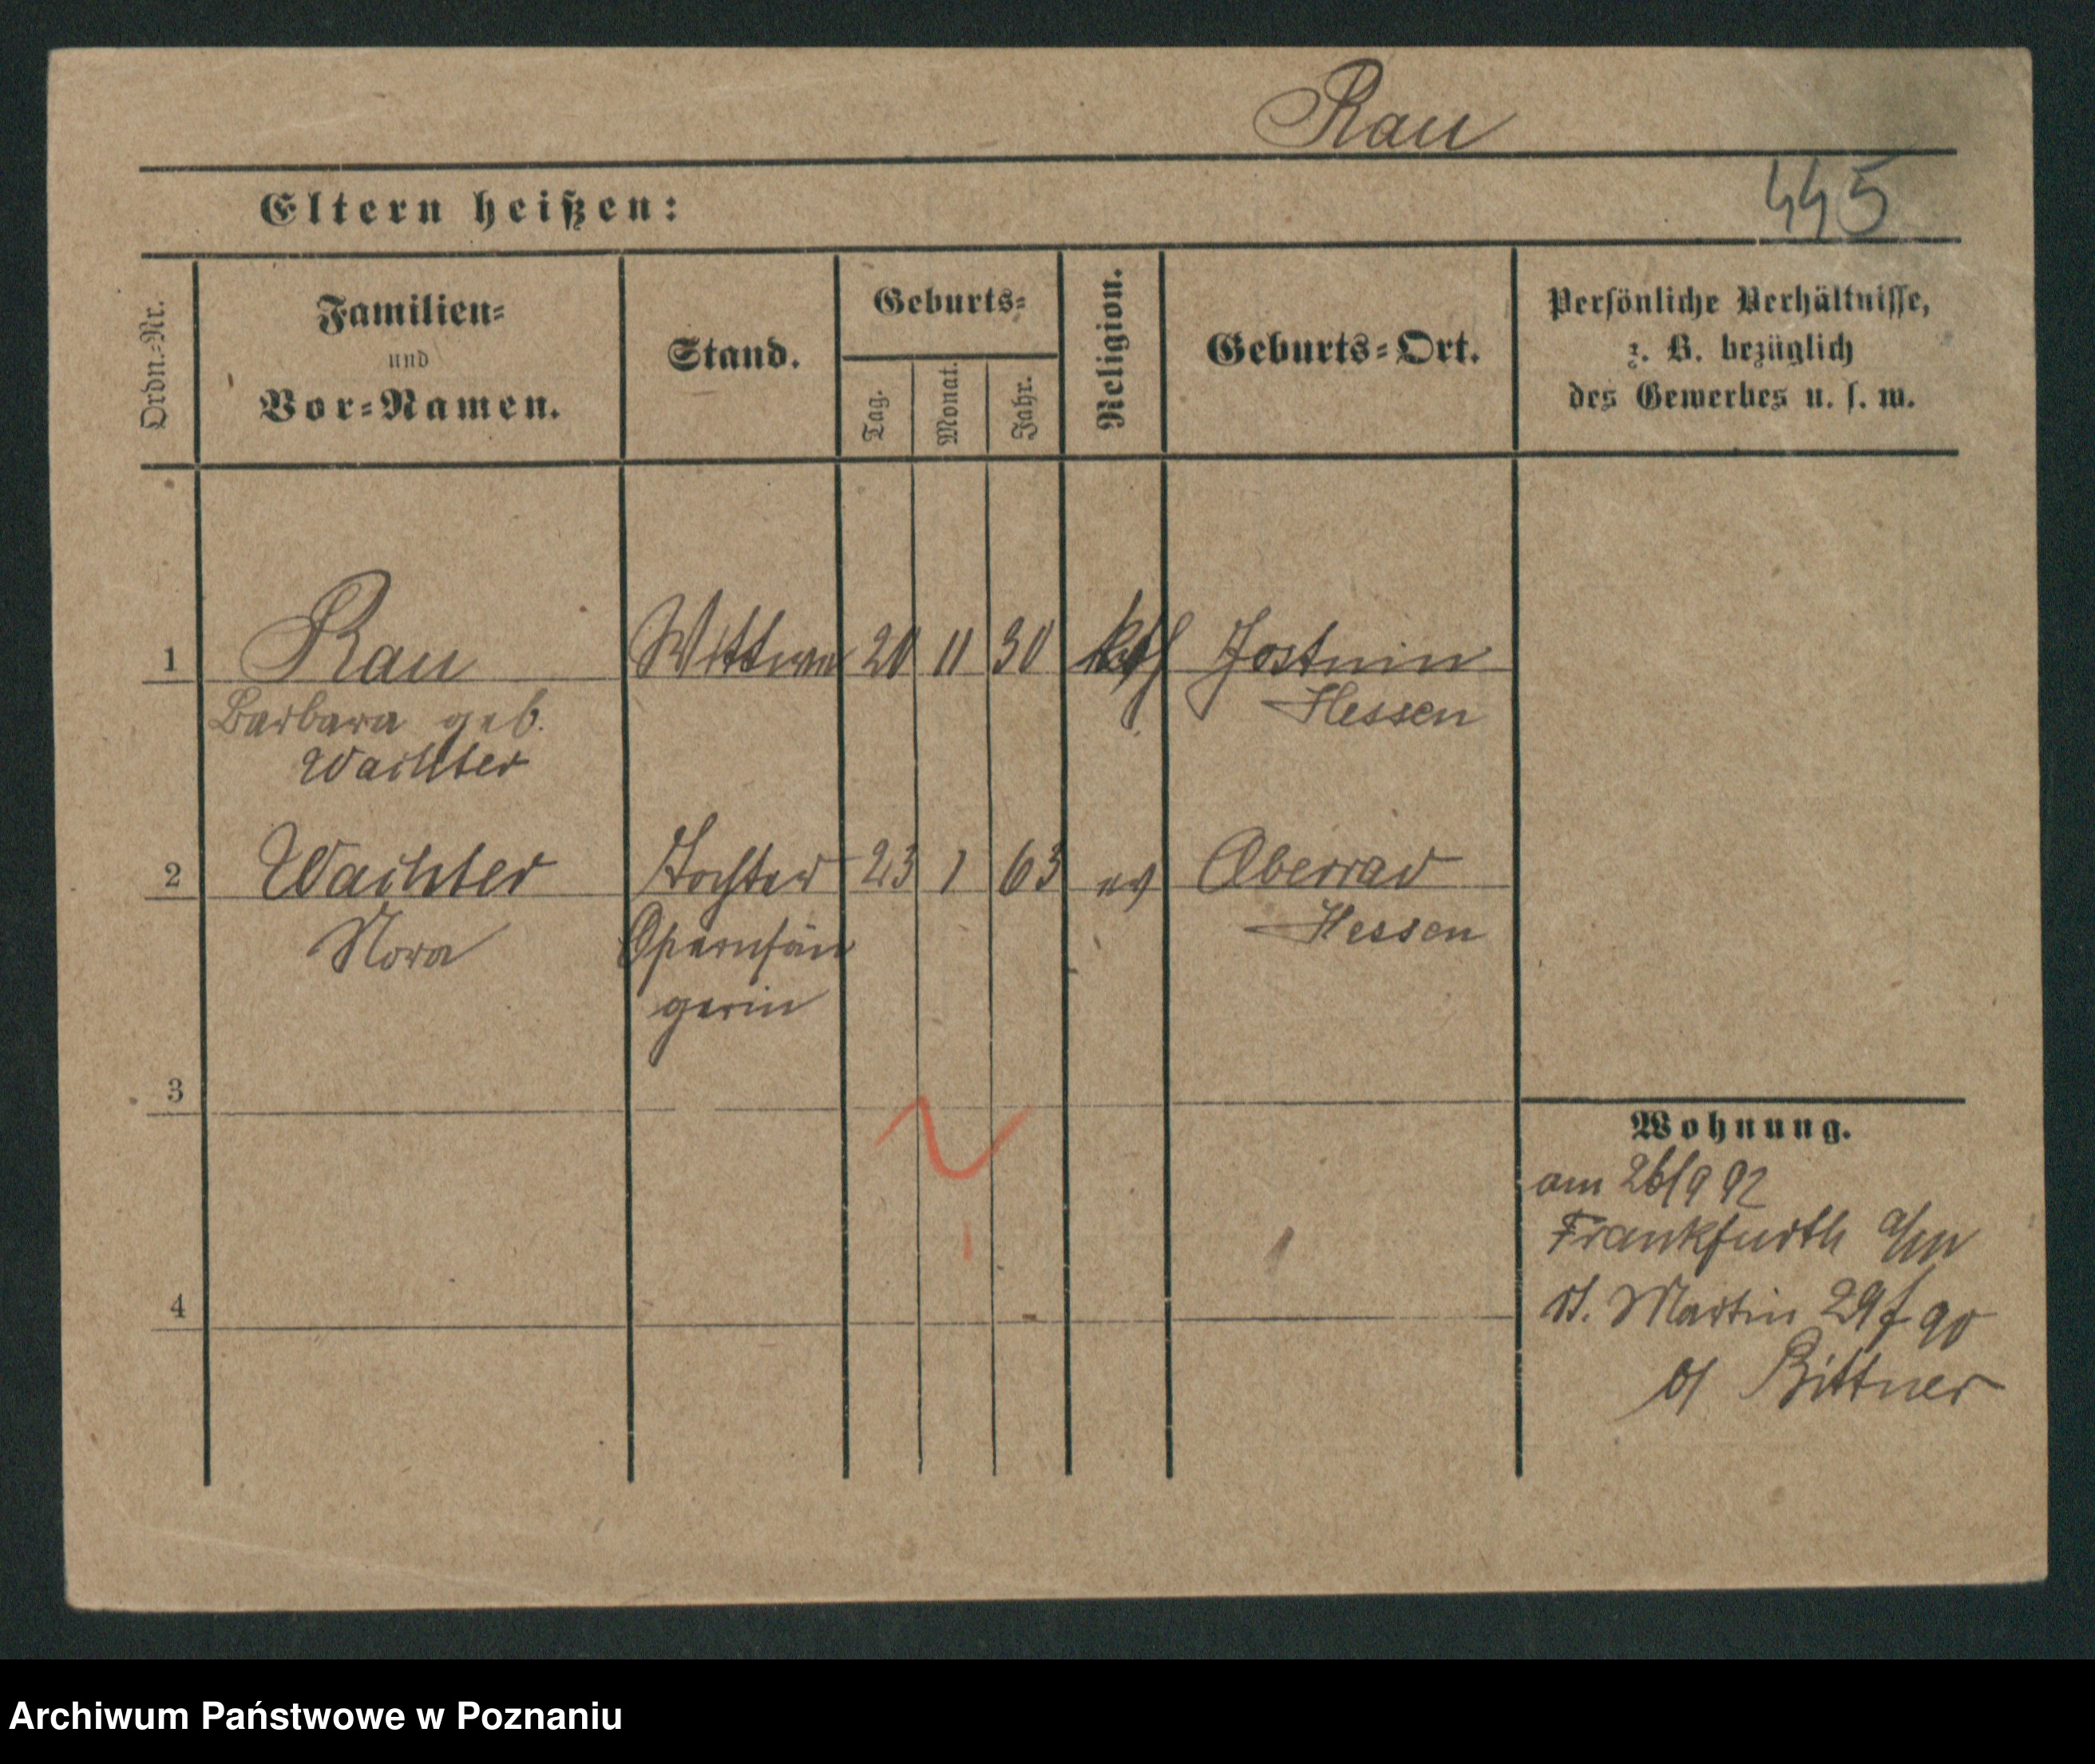 Rau
445
Eltern heißen:
Ordn.-Nr.
Familien-
und
Vor-Namen.
Stand.
Geburts-
Tag.
Monat.
Jahr.
Religion.
Geburts-Ort.
Persönliche Verhältnisse,
z. B. bezüglich
des Gewerbes u. s. w.
1 Rau Wittwe 20 11 30 kth
Hessen
Barbara geb.
Wachter
2 Wachter Tochter 23 1 63 ev Oberrad
Nora Opernsän Hessen
gerin
3
4
Wohnung.
am 26/9 92
Frankfurth a/m
St. Martin 29 90
b/ Bittner
Archiwum Państwowe w Poznaniu